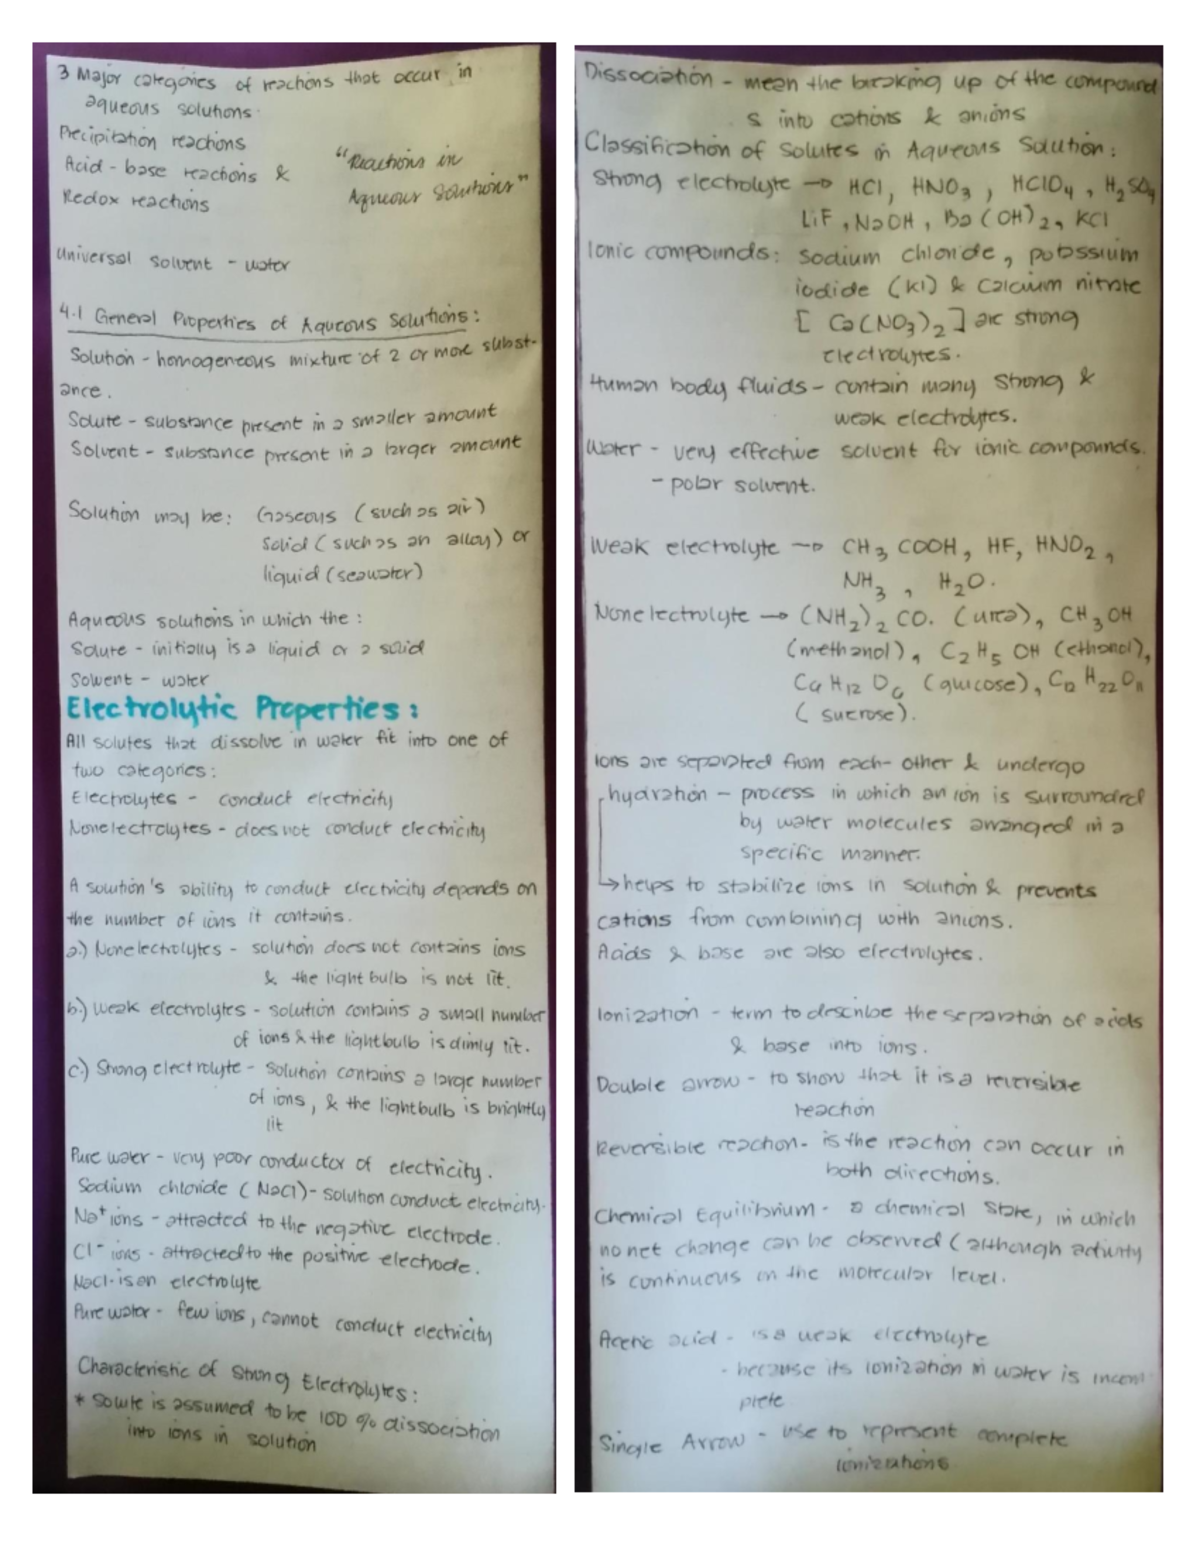 3 Major categories of reactions that occur in
aqueous solutions.
Precipitation reactions
Acid - base reactions &
Redox reactions
"Reactions in
Aqueous Solutions"
Universal solvent - water
4.1 General Properties of Aqueous Solutions:
Solution - homogeneous mixture of 2 or more subst-
ance.
Solute - substance present in a smaller amount
Solvent - substance present in a larger amount
Solution may be: Gaseous (such as air)
Solid (such as an alloy) or
liquid (seawater)
Aqueous solutions in which the:
Solute - initially is a liquid or a solid
Solvent - water
Electrolytic Properties:
All solutes that dissolve in water fit into one of
two categories:
Electrolytes - conduct electricity
Nonelectrolytes - does not conduct electricity
A solution's ability to conduct electricity depends on
the number of ions it contains.
a.) Nonelectrolytes - solution does not contains ions
& the light bulb is not lit.
b.) Weak electrolytes - solution contains a small number
of ions & the lightbulb is dimly lit.
c.) Strong electrolyte - solution contains a large number
of ions, & the lightbulb is brightly
lit
Pure water - very poor conductor of electricity.
Sodium chloride (NaCl) - solution conduct electricity.
Na⁺ ions - attracted to the negative electrode.
Cl⁻ ions - attracted to the positive electrode.
NaCl - is an electrolyte
Pure water - few ions, cannot conduct electricity
Characteristic of Strong Electrolytes:
* Solute is assumed to be 100 % dissociation
into ions in solution
Dissociation - mean the breaking up of the compound
s into cations & anions
Classification of Solutes in Aqueous Solution:
Strong electrolyte → HCl, HNO₃, HClO₄, H₂SO₄
LiF, NaOH, Ba(OH)₂, KCl
Ionic compounds: sodium chloride, potassium
iodide (KI) & Calcium nitrate
[Ca(NO₃)₂] are strong
electrolytes.
Human body fluids - contain many strong &
weak electrolytes.
Water - very effective solvent for ionic compounds.
- polar solvent.
Weak electrolyte → CH₃COOH, HF, HNO₂,
NH₃, H₂O.
Nonelectrolyte → (NH₂)₂CO. (urea), CH₃OH
(methanol), C₂H₅OH (ethanol),
C₆H₁₂O₆ (glucose), C₁₂H₂₂O₁₁
(sucrose).
Ions are separated from each-other & undergo
hydration - process in which an ion is surrounded
by water molecules arranged in a
specific manner.
→ helps to stabilize ions in solution & prevents
cations from combining with anions.
Acids & base are also electrolytes.
Ionization - term to describe the separation of acids
& base into ions.
Double arrow - to show that it is a reversible
reaction
Reversible reaction - is the reaction can occur in
both directions.
Chemical Equilibrium - a chemical state, in which
no net change can be observed (although activity
is continuous on the molecular level.
Acetic acid - is a weak electrolyte
- because its ionization in water is incom
plete
Single Arrow - use to represent complete
ionizations